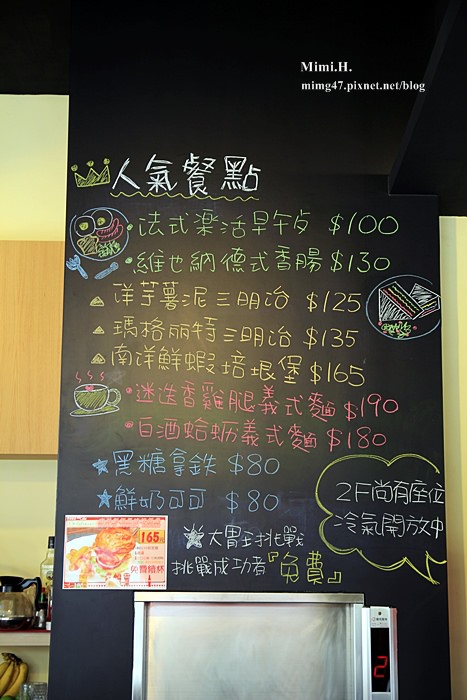 Mimi.H.
mimg47.pixnet.net/blog
人氣餐點
法式樂活早午歺 $100
維也納德式香腸 $130
洋芋薯泥三明治 $125
瑪格麗特三明治 $135
南洋鮮蝦培根堡 $165
迷迭香雞腿義式麵 $190
白酒蛤蛎義式麵 $180
黑糖拿鉄 $80
鮮奶可可 $80
2F尚有座位
冷氣開放中
165
大胃王挑戰
挑戰成功者『免費』
2